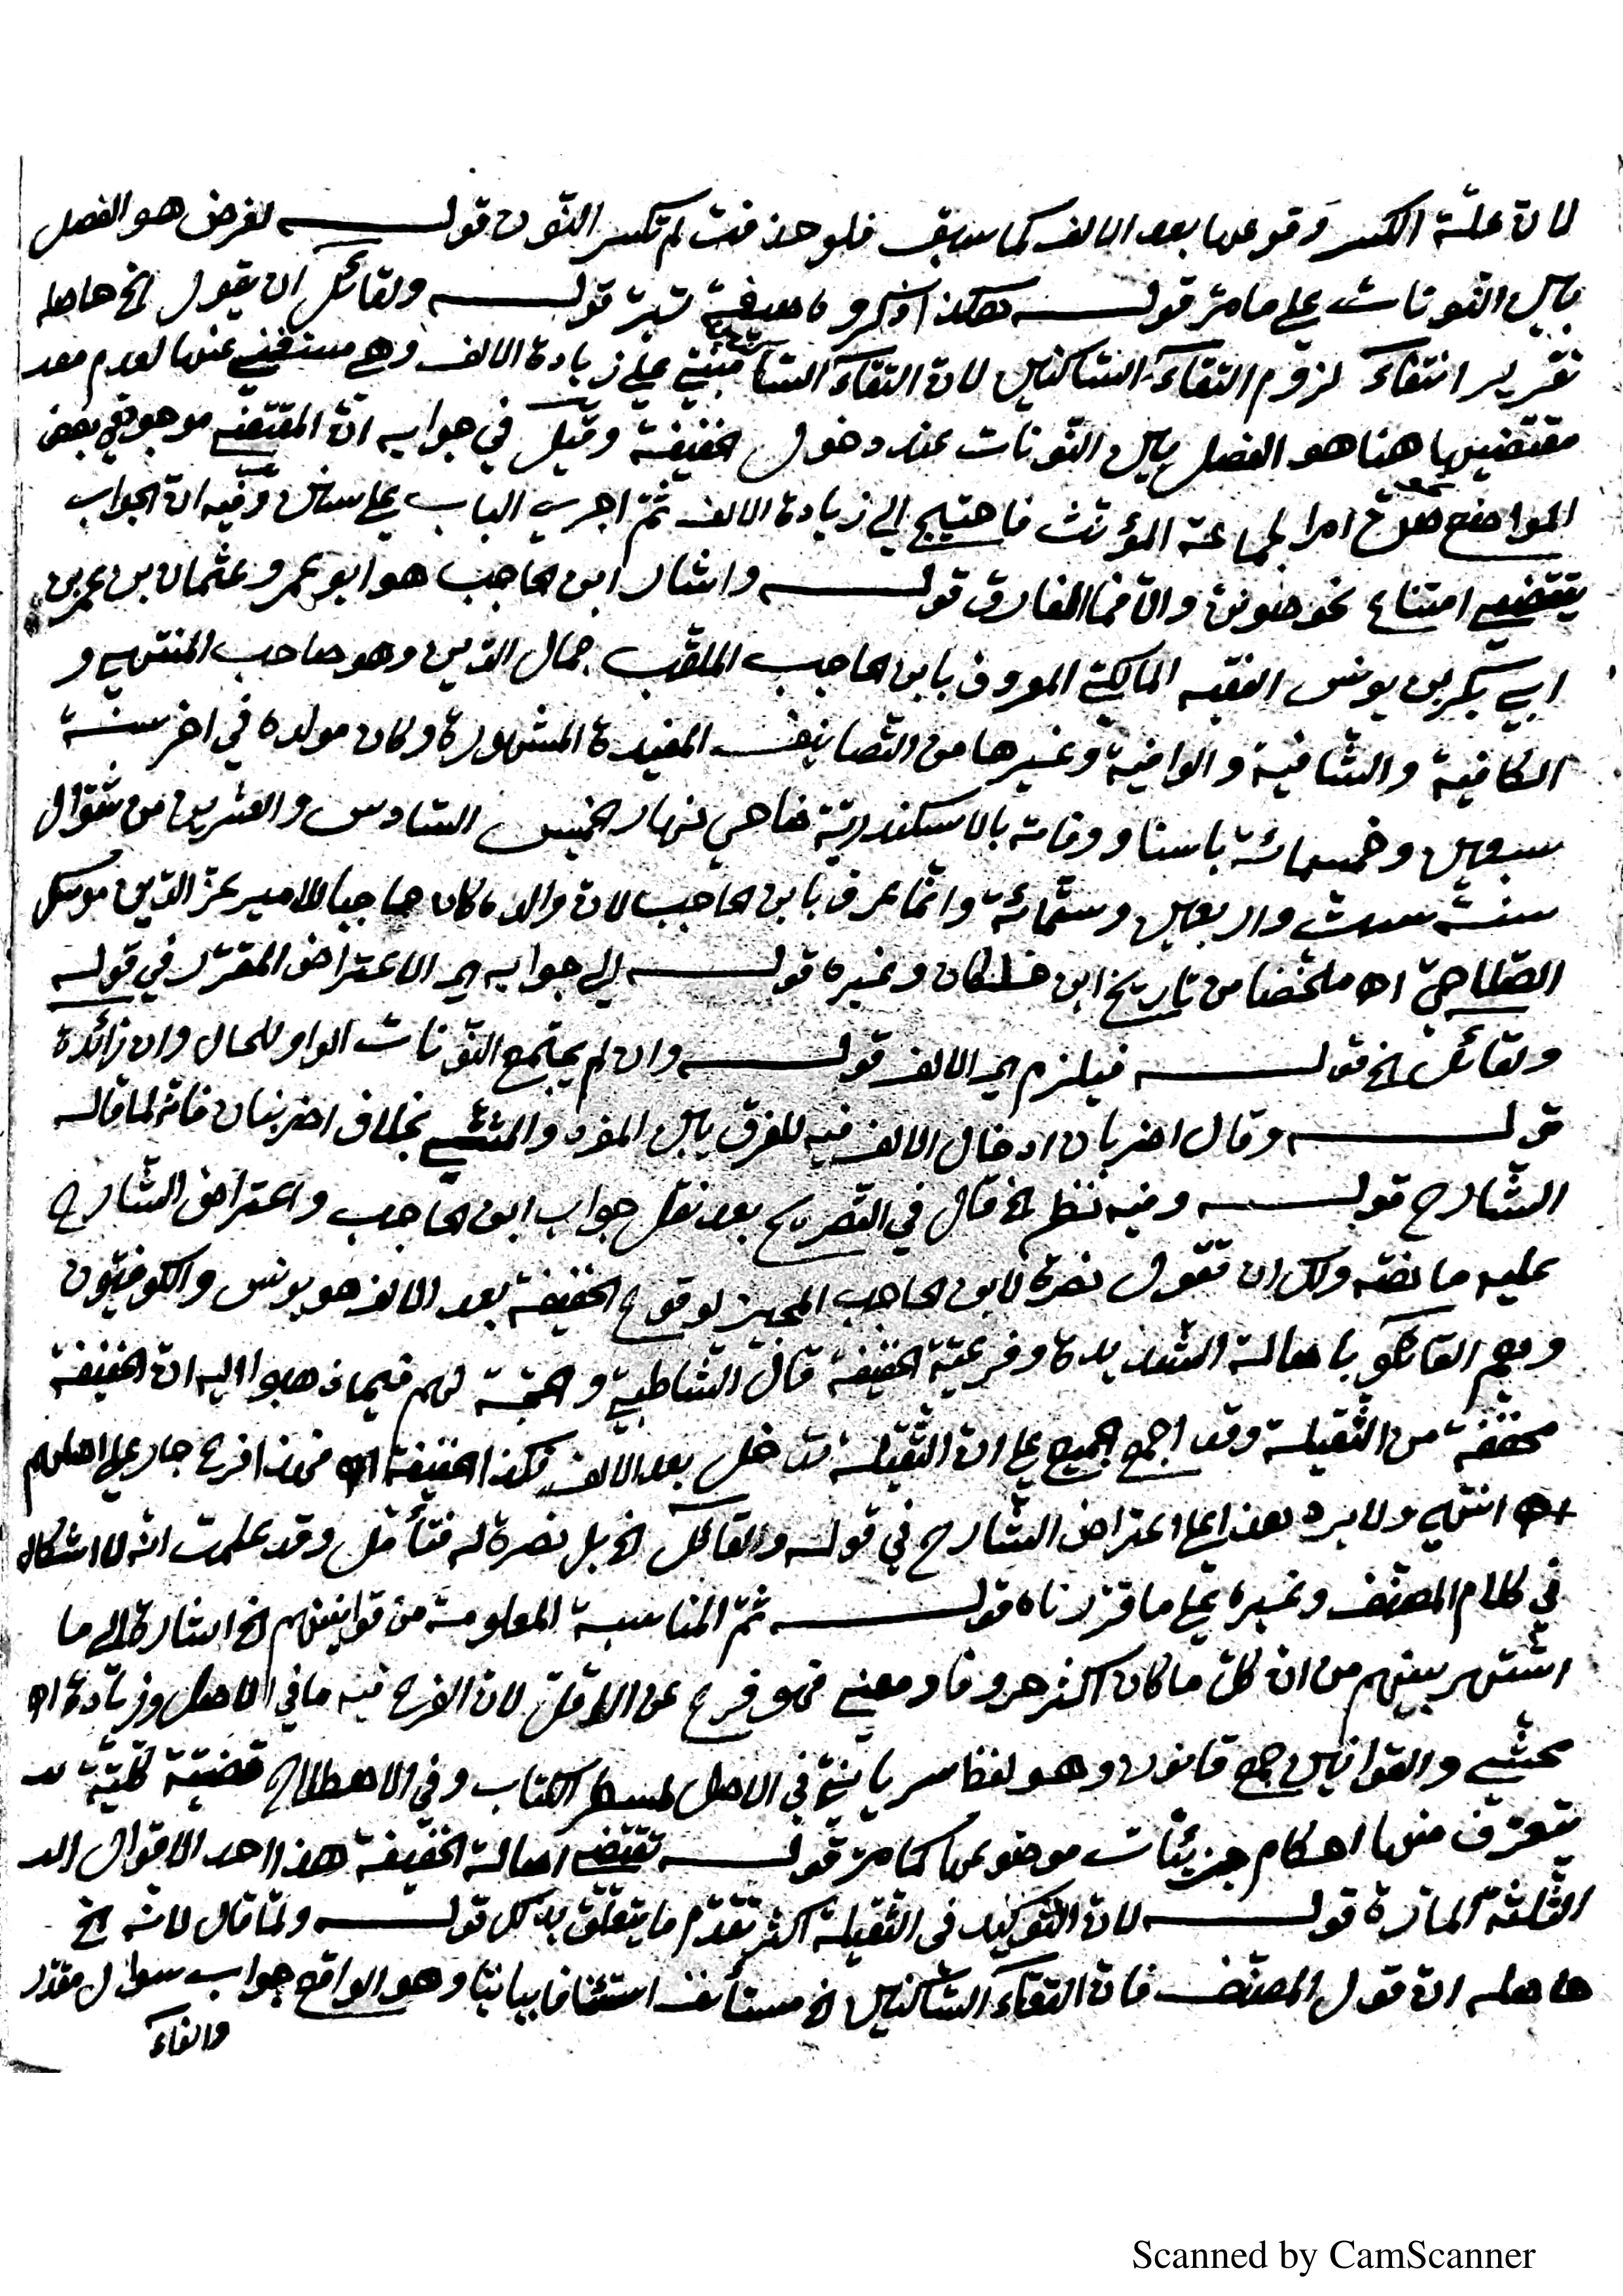 لان علّة الكسر وقوعها بعد الالف كما سبق فلو حذفت لم تكسر النّون قوله لغرض هو الفصل
بين النّونات على ما مرّ قوله هكذا ذكروه وفيه تدبّر قوله ولقائل ان يقول الخ حاصله
تقرير انتفاء لزوم التقاء السّاكنين لان التقاء السّاكنين مبنيّ على زيادة الالف وهي مستغنى عنها لعدم
مقتضيها هنا هو الفصل بين النّونات عند دخول الخفيفة وقيل في جوابه انّ المقتضى موجود في بعض
المواضع نحو امرا لجماعة المؤنّث فاحتيج الى زيادة الالف ثمّ اجري الباب على سنن وفيه ان الجواب
يقتضي امتناع نحو صونن والّا فما الفارق قوله واشار ابن الحاجب هو ابو عمرو عثمان بن عمر بن
ابي بكر بن يونس الفقيه المالكيّ المعروف بابن الحاجب الملقّب جمال الدّين وهو صاحب المنتهى و
الكافية والشّافية والوافية وغيرها من التّصانيف المفيدة المشهورة وكان مولده في اخر سنة
سبعين وخمسمائة باسنا ووفاته بالاسكندريّة ضاحي نهار الخميس السّادس والعشرين من شوّال
سنة ست واربعين وستّمائة وانّما عرف بابن الحاجب لان والده كان حاجبا للامير عزّ الدّين موسك
الصّلاحيّ اه ملخّصا من تاريخ ابن خلكان وغيره قوله الى جوابه اي الاعتراض المقرّر في قوله
ولقائل الخ قوله فيلزم اي الالف قوله وان لم يجتمع النّونات الواو للحال وان زائدة
قوله وقال اضربان ادخال الالف فيه للفرق بين المفرد والمثنّى بخلاف اضربنان فانّه لما قاله
الشّارح قوله وفيه نظر الخ قال في التّصريح بعد نقل جواب ابن الحاجب واعتراض الشّارح
عليه ما نصّه ولك ان تقول نصرة لابن الحاجب المجيز لوقوع الخفيفة بعد الالف هو يونس والكوفيّون
وهم القائلو باصالة الشّديدة وفرعيّة الخفيفة قال الشّاطبي والحجّة لهم فيما ذهبوا اليه انّ الخفيفة
مخفّفة من الثّقيلة وقد اجمع الجميع على ان الثّقيلة تدخل بعد الالف فكذا الخفيفة اه فهذا فرع جار على اصلهم
اه انتهى ولا يرد بعد ذا على اعتراض الشّارح في قوله والقائل الخ بل نصرة له فتأمّل وقد علمت انّه لا اشكال
في كلام المصنّف وغيره على ما قرّرناه قوله ثمّ المناسبة المعلومة من قوانينهم الخ اشارة الى ما
اشتهر بينهم من ان كلّ ما كان اكثر حروفا ومعنى فهو فرع عن الاقلّ لان الفرع فيه ما في الاصل وزيادة اه
محشّي والقوانين جمع قانون وهو لفظ سريانيّ في الاصل لمسطر الكتاب وفي الاصطلاح قضيّة كلّيّة
يتعرّف منها احكام جزئيّات موضوعها كما مرّ قوله تقتضي اصالة الخفيفة هذا احد الاقوال
الثّلثة المارّة قوله لان التّوكيد في الثّقيلة اكثر تقدّم ما يتعلّق بذلك قوله ولمّا قال لانّه الخ
حاصله انّ قول المصنّف فانّ التقاء السّاكنين الخ مستأنف استئنافا بيانيّا وهو الواقع جواب سوال مقدّر
والفاء
Scanned by CamScanner